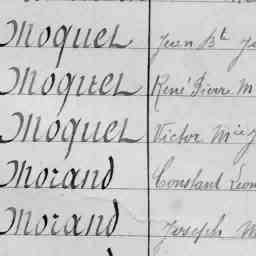 Moquet Jean Bt
Moquel René Pierre M
Moquet Victor Mie J
Morand Constant Léon
Morand Joseph M